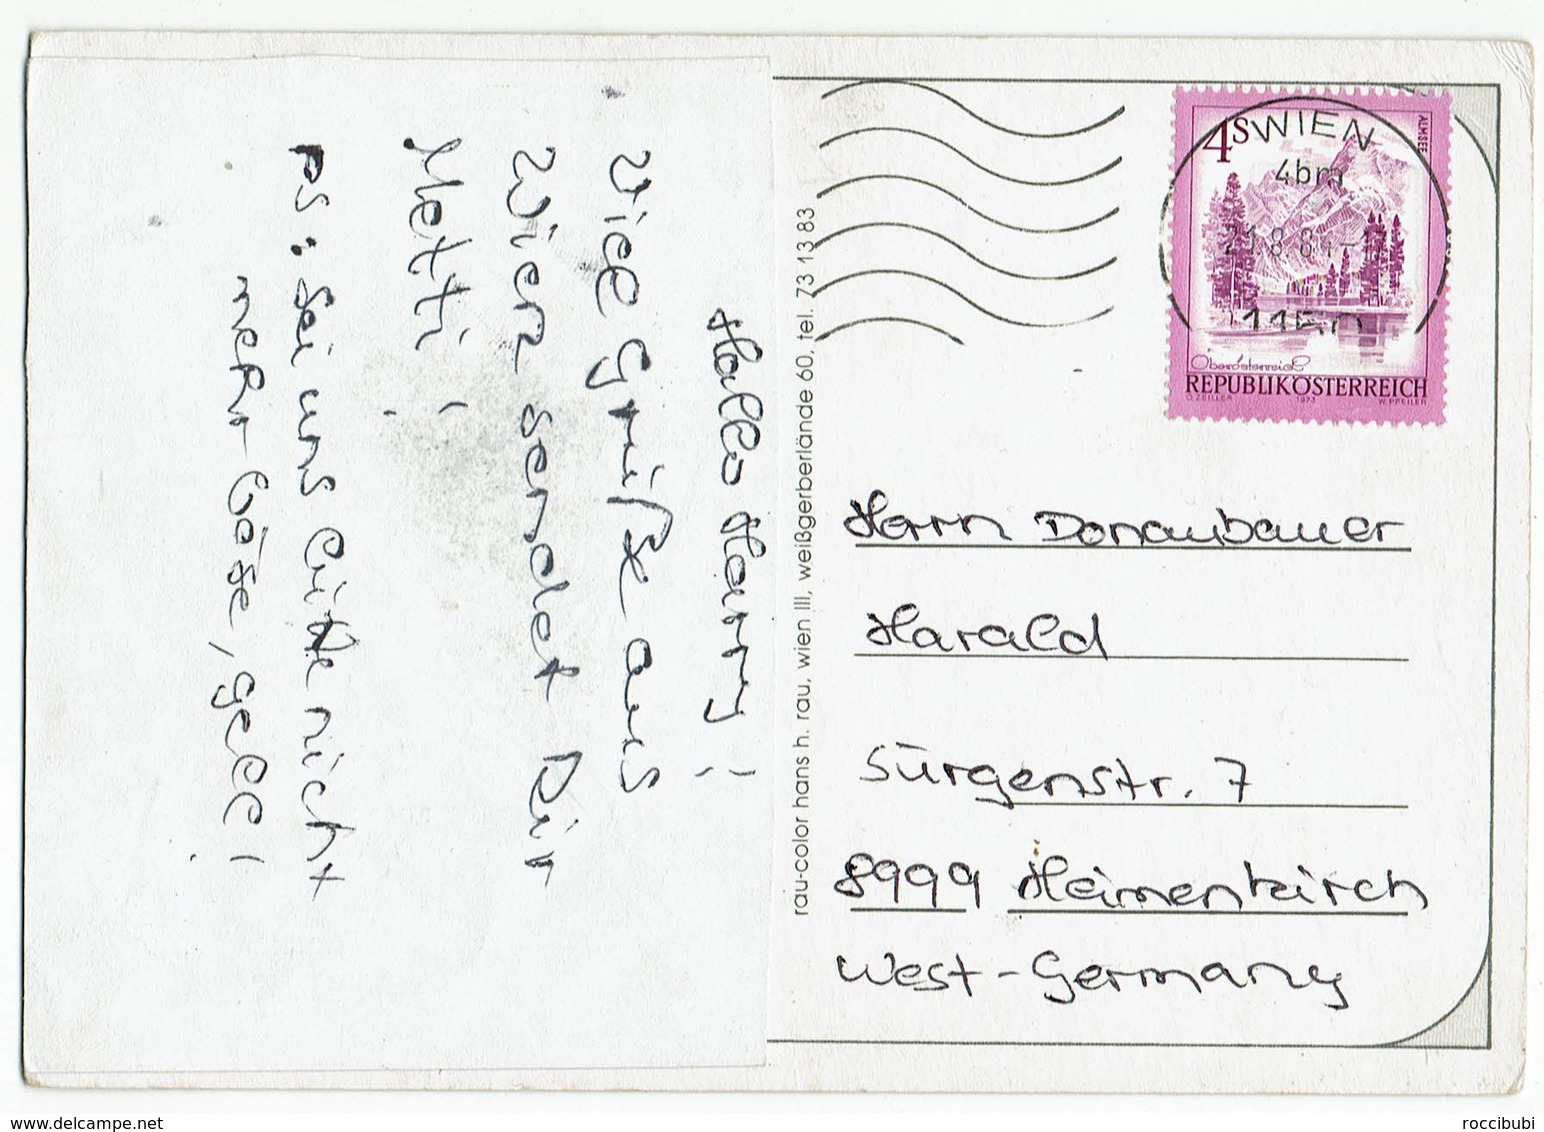 Hallo Harry!
Viele Grüße aus
Wien sendet Dir
Metti!
PS: Sei uns bitte nicht
mehr böse, gell!
rau-color hans h. rau, wien III, weißgerberlände 60, tel. 73 13 83
WIEN
1150
4S
ALMSEE
Oberösterreich
REPUBLIK ÖSTERREICH
O. ZEILLER 1973 W. PFEILER
Herrn Donaubauer
Harald
Sürgenstr. 7
8999 Heimenkirch
West-Germany
www.delcampe.net
roccibubi